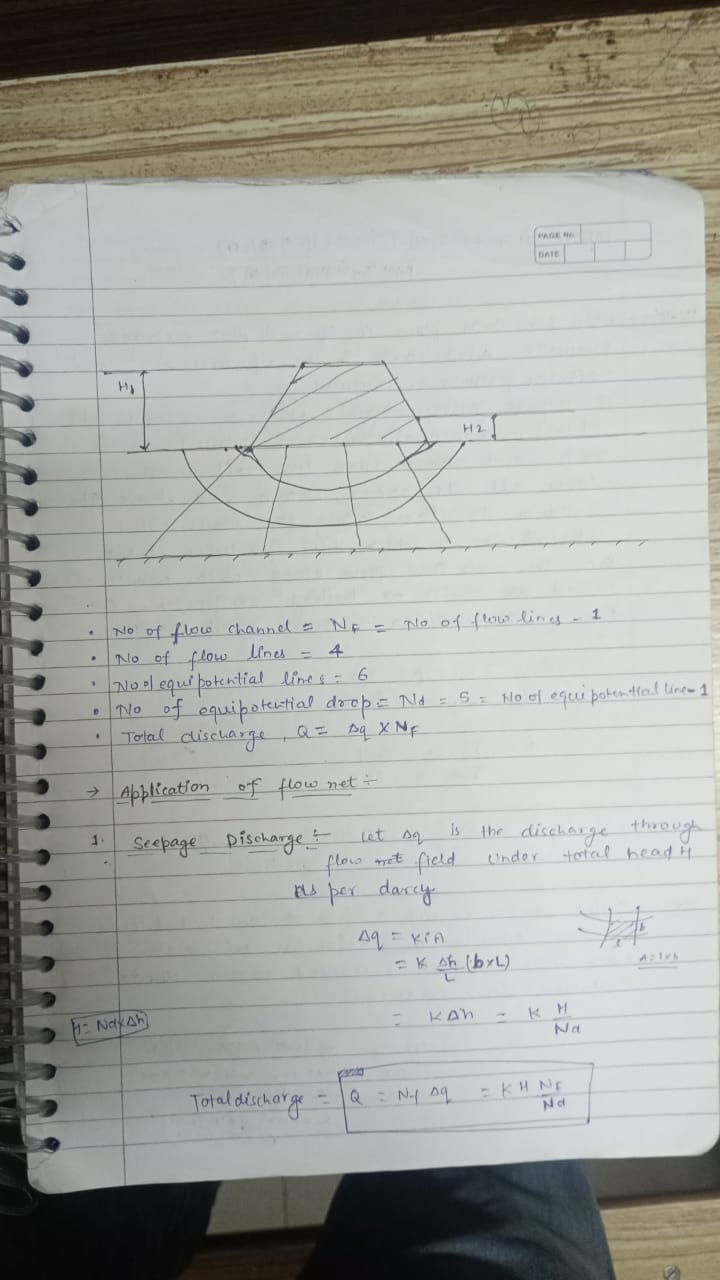 PAGE No
DATE
H1
H2
No of flow channel = NF = No of flow lines - 1
No of flow lines = 4
No of equipotential lines = 6
No of equipotential drop = Nd = 5 = No of equipotential line - 1
Total discharge, Q = Δq x NF
→ Application of flow net ÷
1. Seepage Discharge ÷ Let Δq is the discharge through
flow net field under total head H
As per darcy
Δq = KiA
= K Δh/L (b×L)
A = 1×b
H = Nd×Δh
= KΔh = K H/Nd
Total discharge = Q = Nf Δq = K H NF/Nd